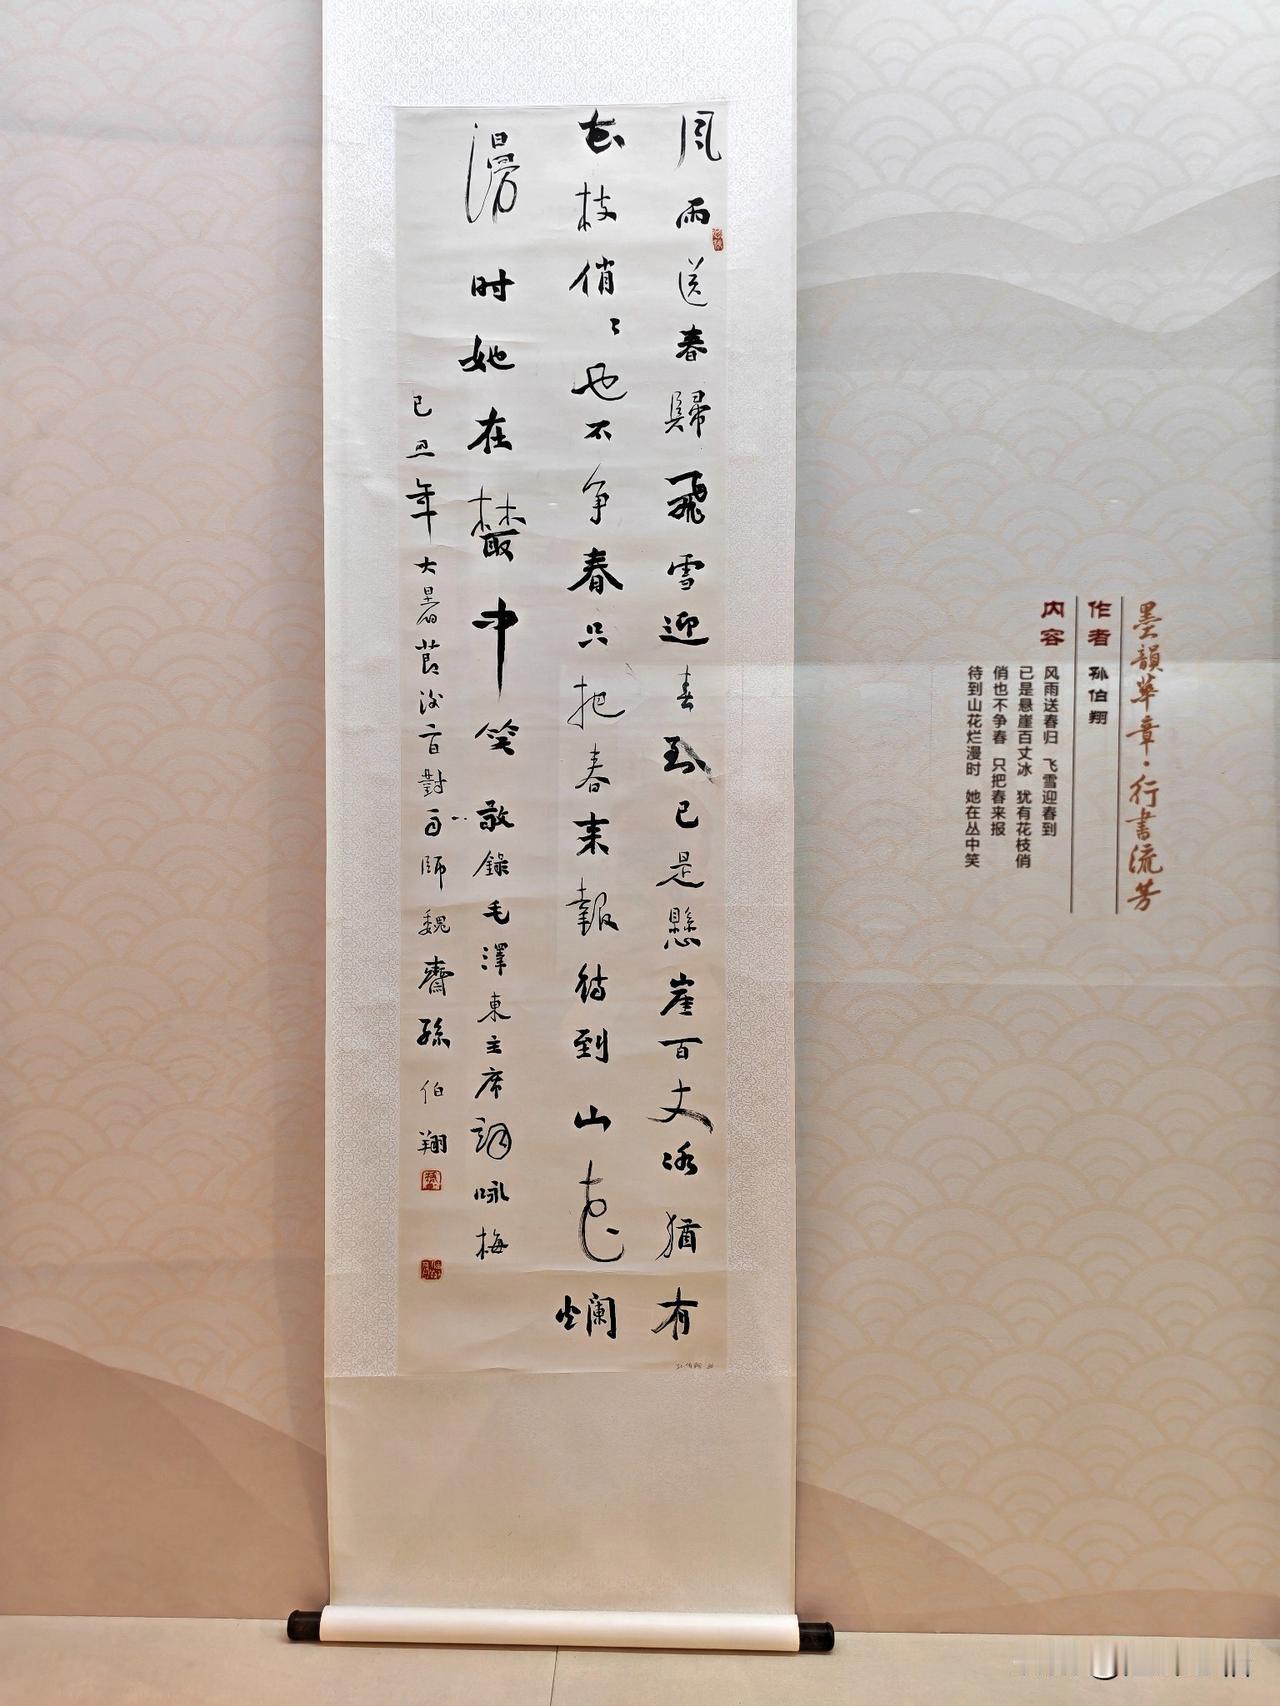 風雨送春歸飛雪迎春到已是懸崖百丈冰猶有
花枝俏〻也不争春只把春来報待到山花爛
漫时她在叢中笑敬錄毛澤東主席詞咏梅
己丑年大暑
師魏齋孫伯翔
墨韻华章·行書流芳
作者 孙伯翔
内容 风雨送春归 飞雪迎春到
已是悬崖百丈冰 犹有花枝俏
俏也不争春 只把春来报
待到山花烂漫时 她在丛中笑